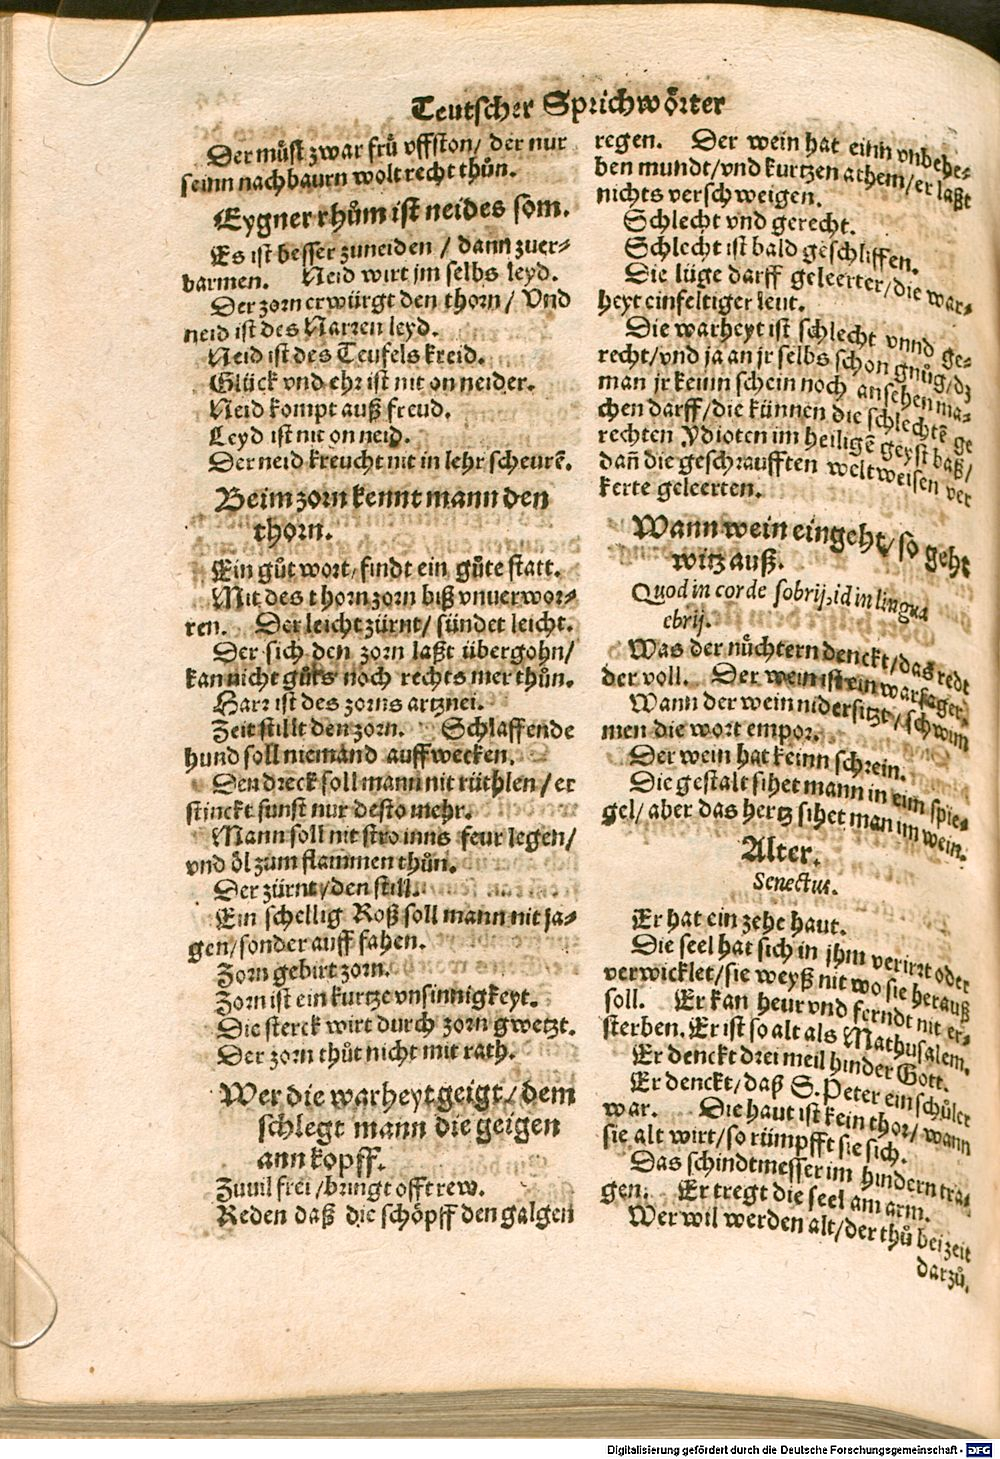 Teutscher Sprichwörter
Der můſt zwar frů vffſton/ der nur
ſeinn nachbaurn wolt recht thůn.
Eygner rhům iſt neides ſom.
Es iſt beſſer zuneiden / dann zuer-
barmen. Neid wirt jm ſelbs leyd.
Der zorn erwürgt den thorn / Vnd
neid iſt des Narren leyd.
Neid iſt des Teufels kreid.
Glück vnd ehr iſt nit on neider.
Neid kompt auß freud.
Leyd iſt nit on neid.
Der neid kreucht nit in lehr ſcheurẽ.
Beim zorn kennt mann den
thorn.
Ein gůt wort/ findt ein gůte ſtatt.
Mit des thorn zorn biß vnuerwor-
ren. Der leicht zürnt/ ſündet leicht.
Der ſich den zorn laßt übergohn/
kan nicht gůts noch rechts mer thůn.
Harr iſt des zorns artznei.
Zeit ſtillt den zorn. Schlaffende
hund ſoll niemand auffwecken.
Den dreck ſoll mann nit rüthlen / er
ſtinckt ſunſt nur deſto mehr.
Mann ſoll nit ſtro inns feur legen/
vnd öl zum flammen thůn.
Der zürnt/ den ſtill.
Ein ſchellig Roß ſoll mann nit ja-
gen/ ſonder auff fahen.
Zorn gebirt zorn.
Zorn iſt ein kurtze vnſinnigkeyt.
Die ſterck wirt durch zorn gwetzt.
Der zorn thůt nicht mit rath.
Wer die warheyt geigt/ dem
ſchlegt mann die geigen
ann kopff.
Zuuil frei /bringt offt rew.
Reden daß die ſchöpff den galgen
regen. Der wein hat einn vnbehe-
ben mundt/ vnd kurtzen athem/ er laßt
nichts verſchweigen.
Schlecht vnd gerecht.
Schlecht iſt bald geſchliffen.
Die lüge darff geleerter/ die war-
heyt einfeltiger leut.
Die warheyt iſt ſchlecht vnnd ge-
recht/ vnd ja an jr ſelbs ſchon gnůg/ dz
man jr keinn ſchein noch anſehen ma-
chen darff/ die künnen die ſchlechtẽ ge
rechten Ydioten im heiligẽ geyſt baß/
dañ die geſchraufften weltweiſen ver
kerte geleerten.
Wann wein eingeht/ ſo geht
witz auß.
Quod in corde ſobrij, id in lingua
ebrij.
Was der nüchtern denckt/ das redt
der voll. Der wein iſt ein warſager.
Wann der wein niderſitzt/ ſchwim
men die wort empor.
Der wein hat keinn ſchrein.
Die geſtalt ſihet mann in eim ſpie-
gel/ aber das hertz ſihet man im wein.
Alter.
Senectus.
Er hat ein zehe haut.
Die ſeel hat ſich in jhm verirrt oder
verwicklet/ ſie weyß nit wo ſie herauß
ſoll. Er kan heur vnd ferndt nit er-
ſterben. Er iſt ſo alt als Mathuſalem.
Er denckt drei meil hinder Gott.
Er denckt/ daß S. Peter ein ſchůler
war. Die haut iſt kein thor/ wann
ſie alt wirt/ ſo rümpfft ſie ſich.
Das ſchindtmeſſer im hindern tra-
gen. Er tregt die ſeel am arm.
Wer wil werden alt/ der thů bei zeit
darzů.
Digitalisierung gefördert durch die Deutsche Forschungsgemeinschaft - DFG